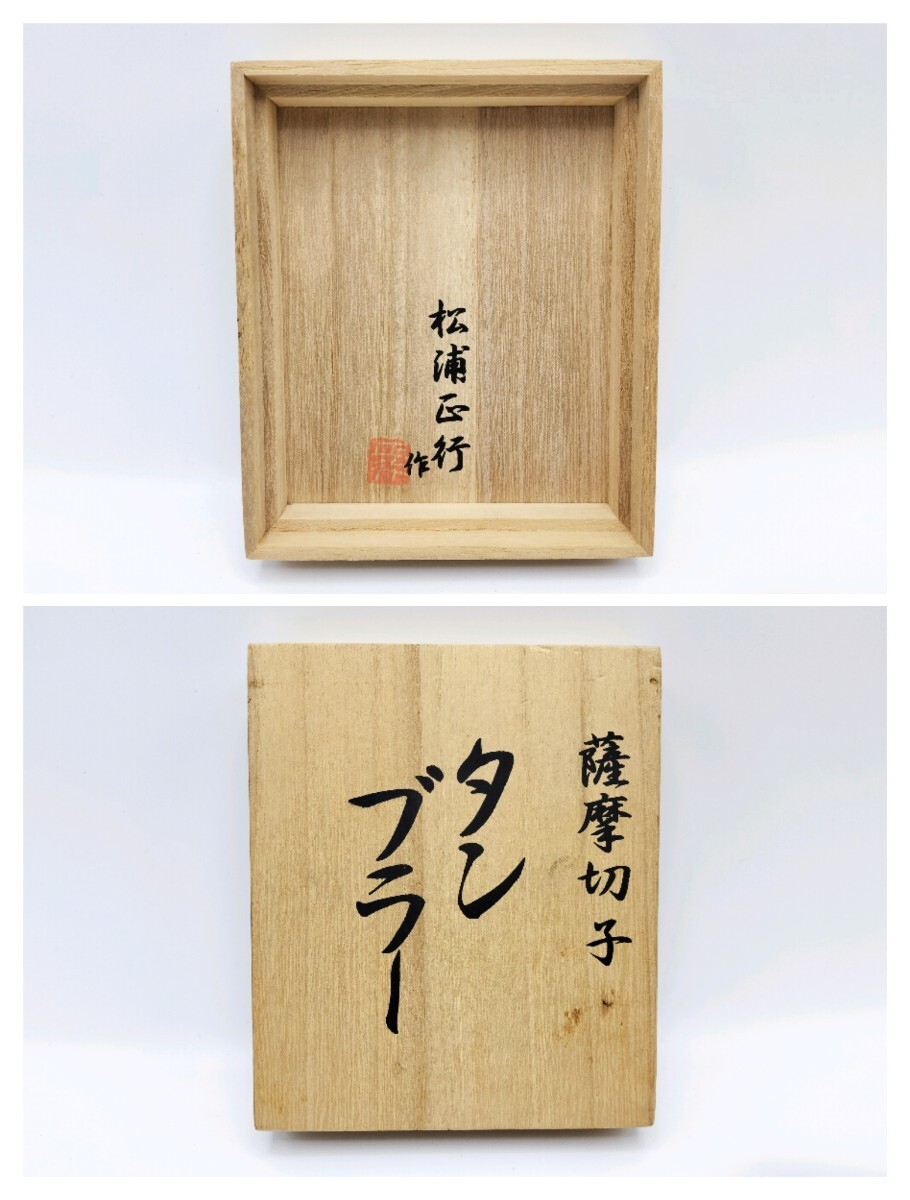 松浦正行
作
薩摩切子
タン
ブラー